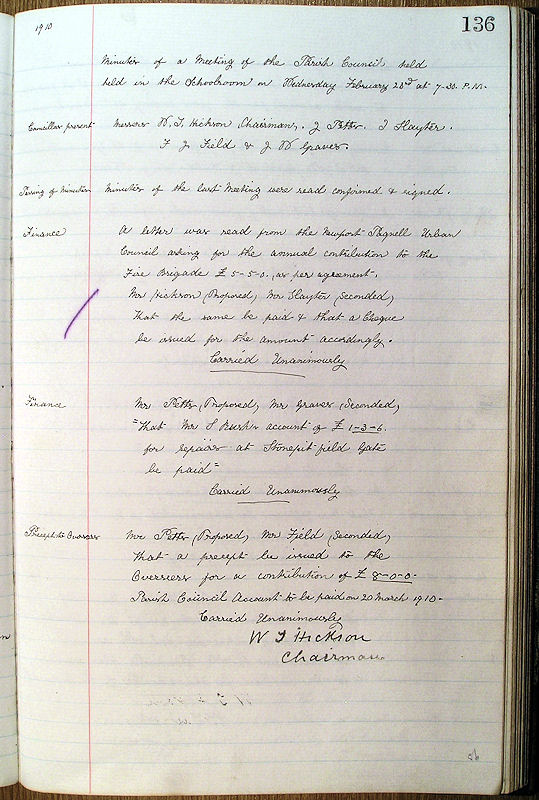 1910
136
Minutes of a Meeting of the Parish Council held
held in the Schoolroom on Wednesday February 23rd at 7-30. P.M.
Councillors present Messrs W. T. Hickson (Chairman), J Petts. T Slayter.
F J. Field & J W Graves.
Passing of Minutes Minutes of the last Meeting were read confirmed & signed.
Finance A letter was read from the Newport Pagnell Urban
Council asking for the annual contribution to the
Fire Brigade £5-5-0. as per agreement.
Mr Hickson (Proposed) Mr Slayter (seconded)
That the same be paid & that a Cheque
be issued for the amount accordingly.
Carried Unanimously
Finance Mr Petts (Proposed) Mr Graves (Seconded)
"That Mr S Bush's account of £1-3-6.
for repairs at Stonepit field Gate
be paid"
Carried Unanimously
Precept to Overseers Mr Petts (Proposed) Mr Field (Seconded)
That a precept be issued to the
Overseers for a contribution of £8-0-0.
Parish Council Account to be paid on 20 March 1910-
Carried Unanimously
W T Hickson
Chairman